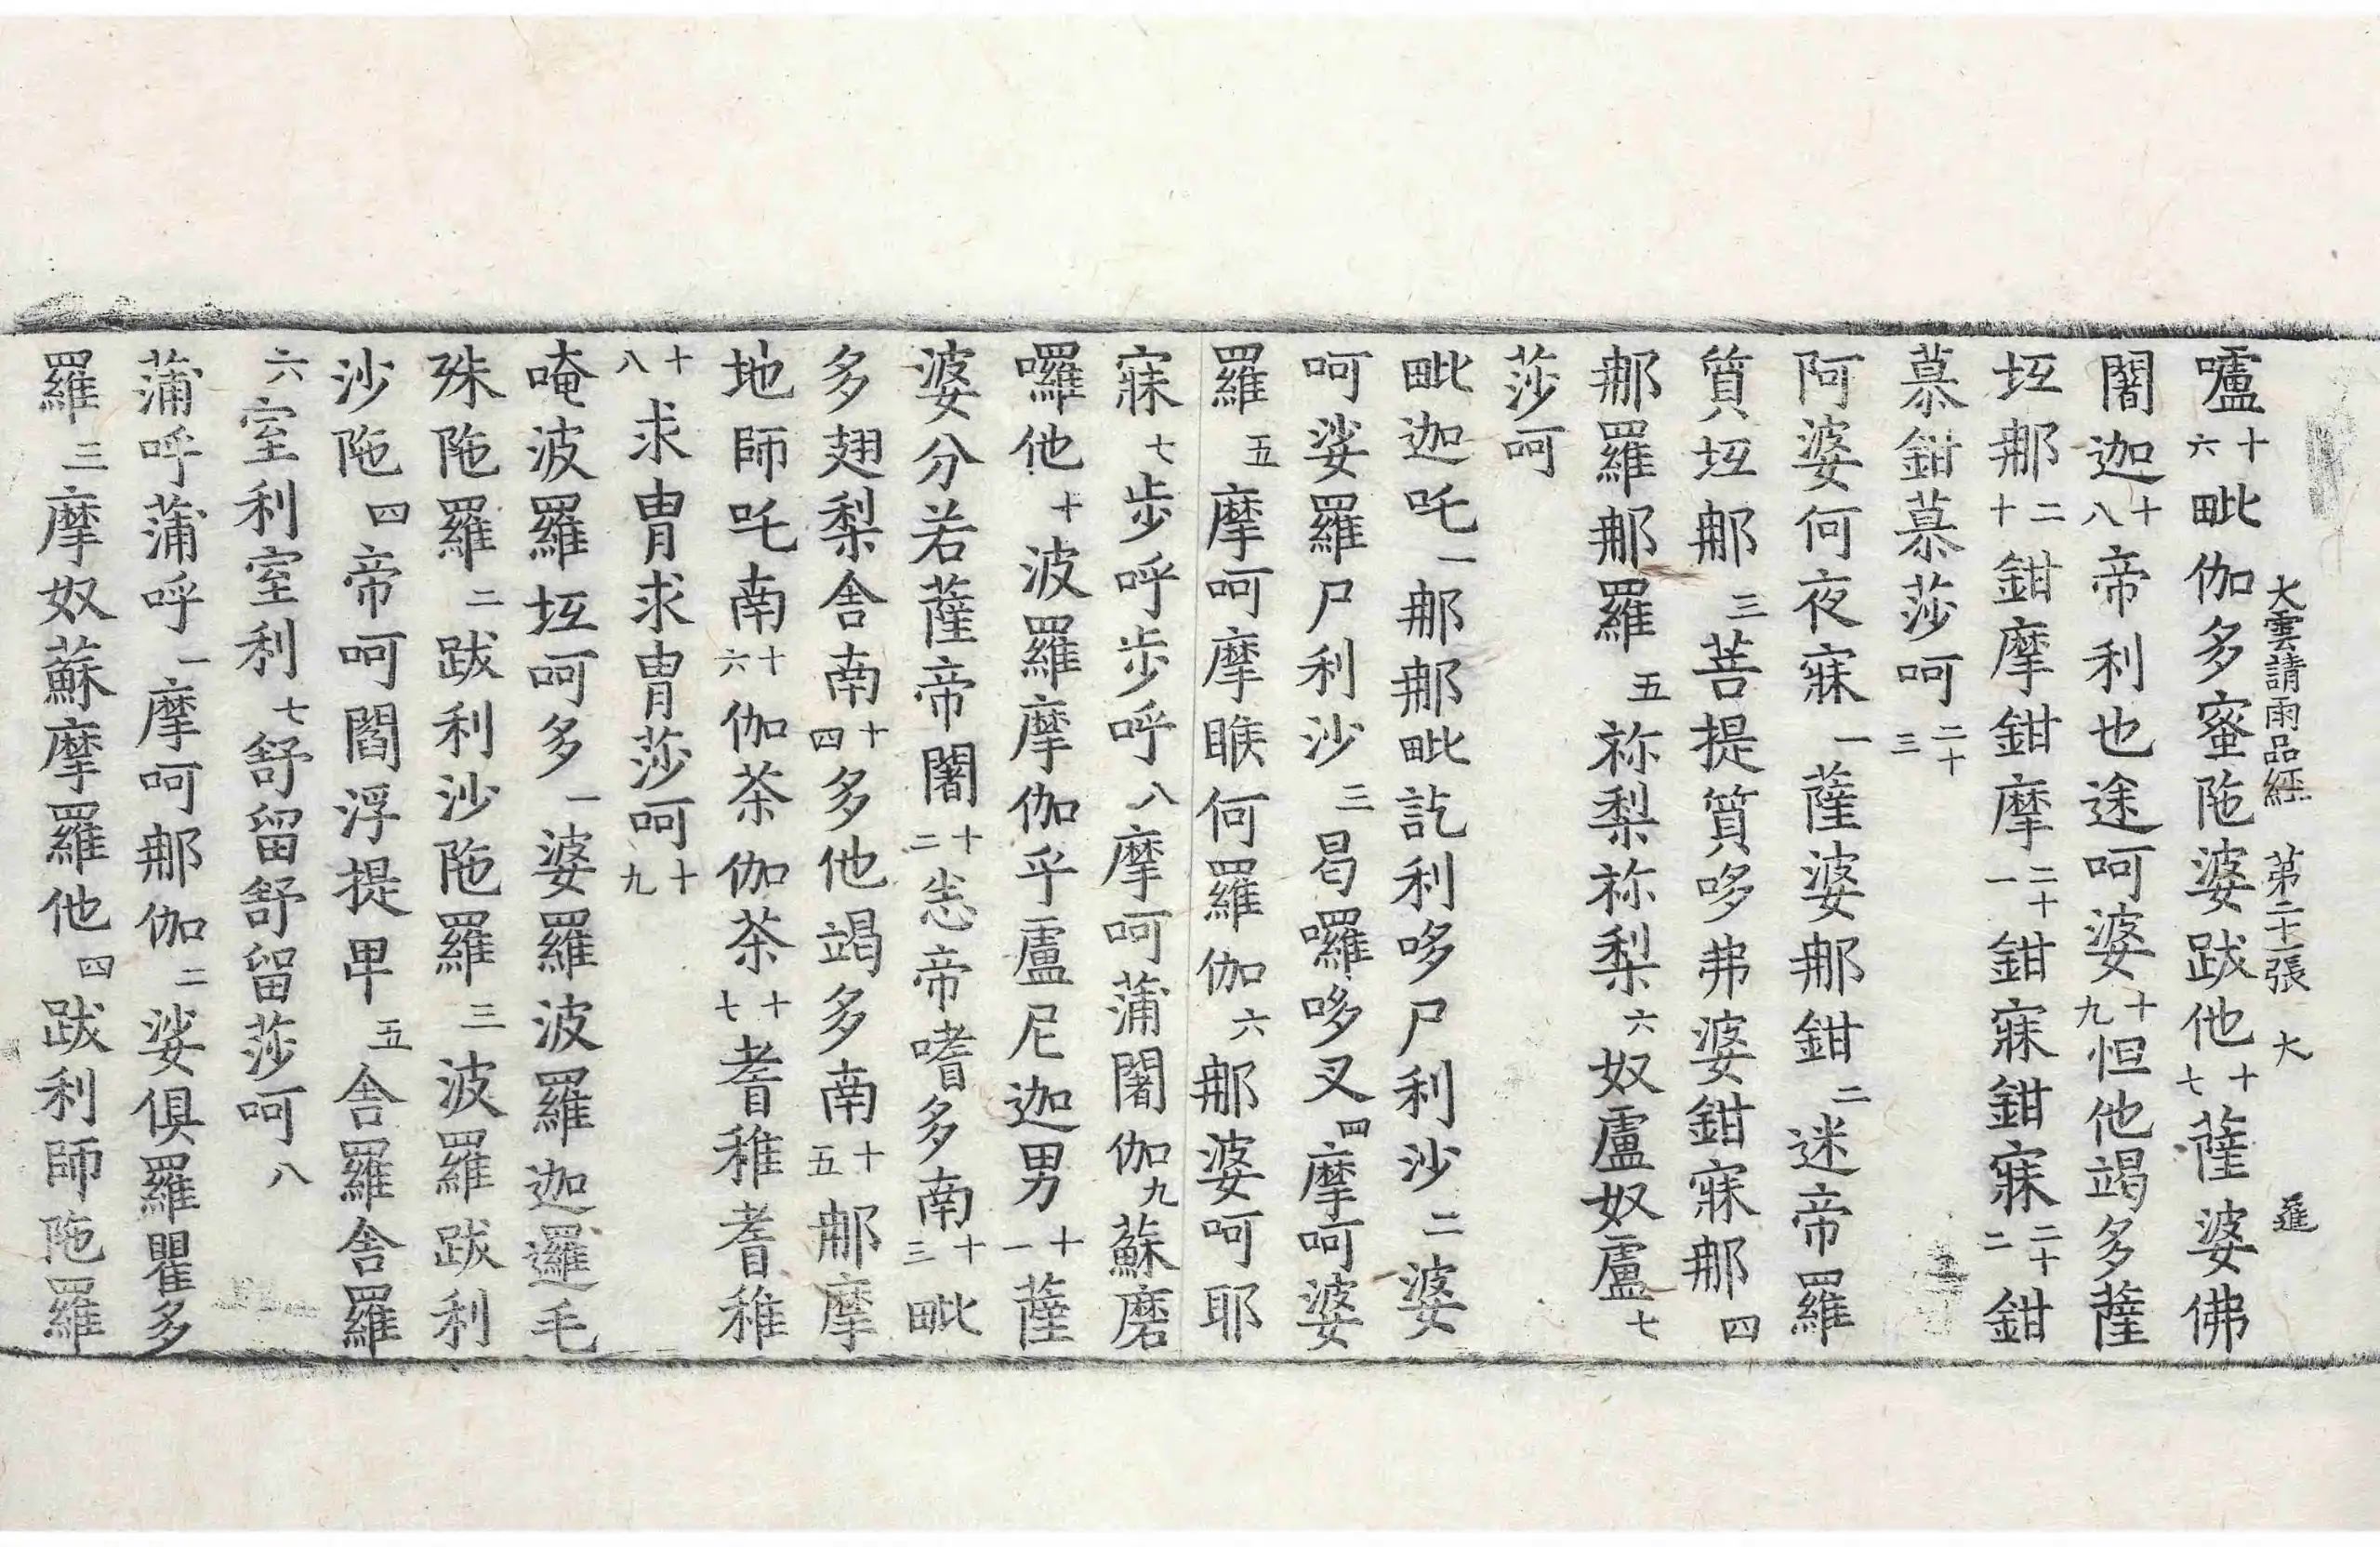 大雲請雨品經 第二十張 大 薤
嚧十六毗伽多蜜陁婆跋他十七薩婆佛
闍迦十八帝利也途呵婆十九怛他竭多薩
坘那二十鉗摩鉗摩二十一鉗寐鉗寐二十二鉗
慕鉗慕莎呵二十三
阿婆何夜寐一薩婆那鉗二迷帝羅
質坘那三菩提質哆弗婆鉗寐那四
那羅那羅五祢梨祢梨六奴盧奴盧七
莎呵
毗迦吒一那那毗訖利哆尸利沙二婆
呵娑羅尸利沙三曷囉哆叉四摩呵婆
羅五摩呵摩睺何羅伽六那婆呵耶
寐七步呼步呼八摩呵蒲闍伽九蘇磨
囉他十波羅摩伽乎盧尼迦男十一薩
婆分若薩帝闍十二恙帝嗜多南十三毗
多翅梨舍南十四多他竭多南十五那摩
地師吒南十六伽茶伽茶十七耆稚耆稚
十八求胄求胄莎呵十九
唵波羅坘呵多一婆羅波羅迦邏毛
殊陁羅二跋利沙陁羅三波羅跋利
沙陁四帝呵閻浮提甲五舍羅舍羅
六室利室利七舒留舒留莎呵八
蒲呼蒲呼一摩呵那伽二娑俱羅瞿多
羅三摩奴蘇摩羅他四跋利師陁羅